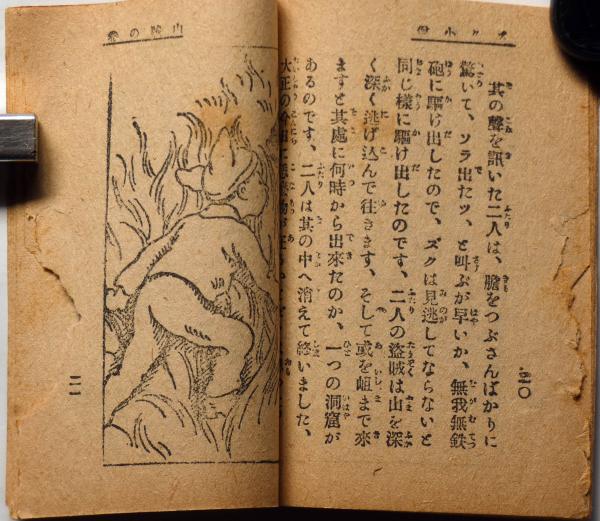 其の聲を訊いた二人は、膽をつぶさんばかりに
驚いて、ソラ出たッ、と叫ぶが早いか、無我無鉄
砲に驅け出したので、ズクは見逃してならないと
同じ様に驅け出したのです、二人の盗賊は山を深
く深く逃げ込んで往きます、そして或る岨まで來
ますと其處に何時から出來たのか、一つの洞窟が
あるのです、二人は其の中へ消えて終いました、
大正の
二〇
山
の
二一